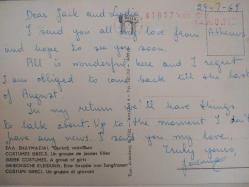 29-7-65
Dear Jack and Lydia
I send you all my love from Athens
and hope to see you soon.
All is wonderful here and I regret
I am obliged to come back till the end
of August.
In my return I'll have things
to talk about. Up to the moment I don't
have any news. I send you my love.
Truly yours,
ΕΛΛ. ΕΝΔΥΜΑΣΙΑΙ.
COSTUMES GRECS. Un groupe de jeunes filles
GREEK COSTUMES. A group of girls
GRIECHISCHE KLEIDUNG. Eine Gruppe von Jungfrauen
COSTUMI GRECI. Un gruppo di giovani